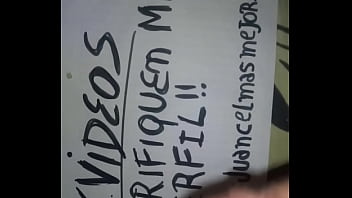 XVIDEOS
RIFIQUEN M
RFIL!!
JuancelmasmeJOR